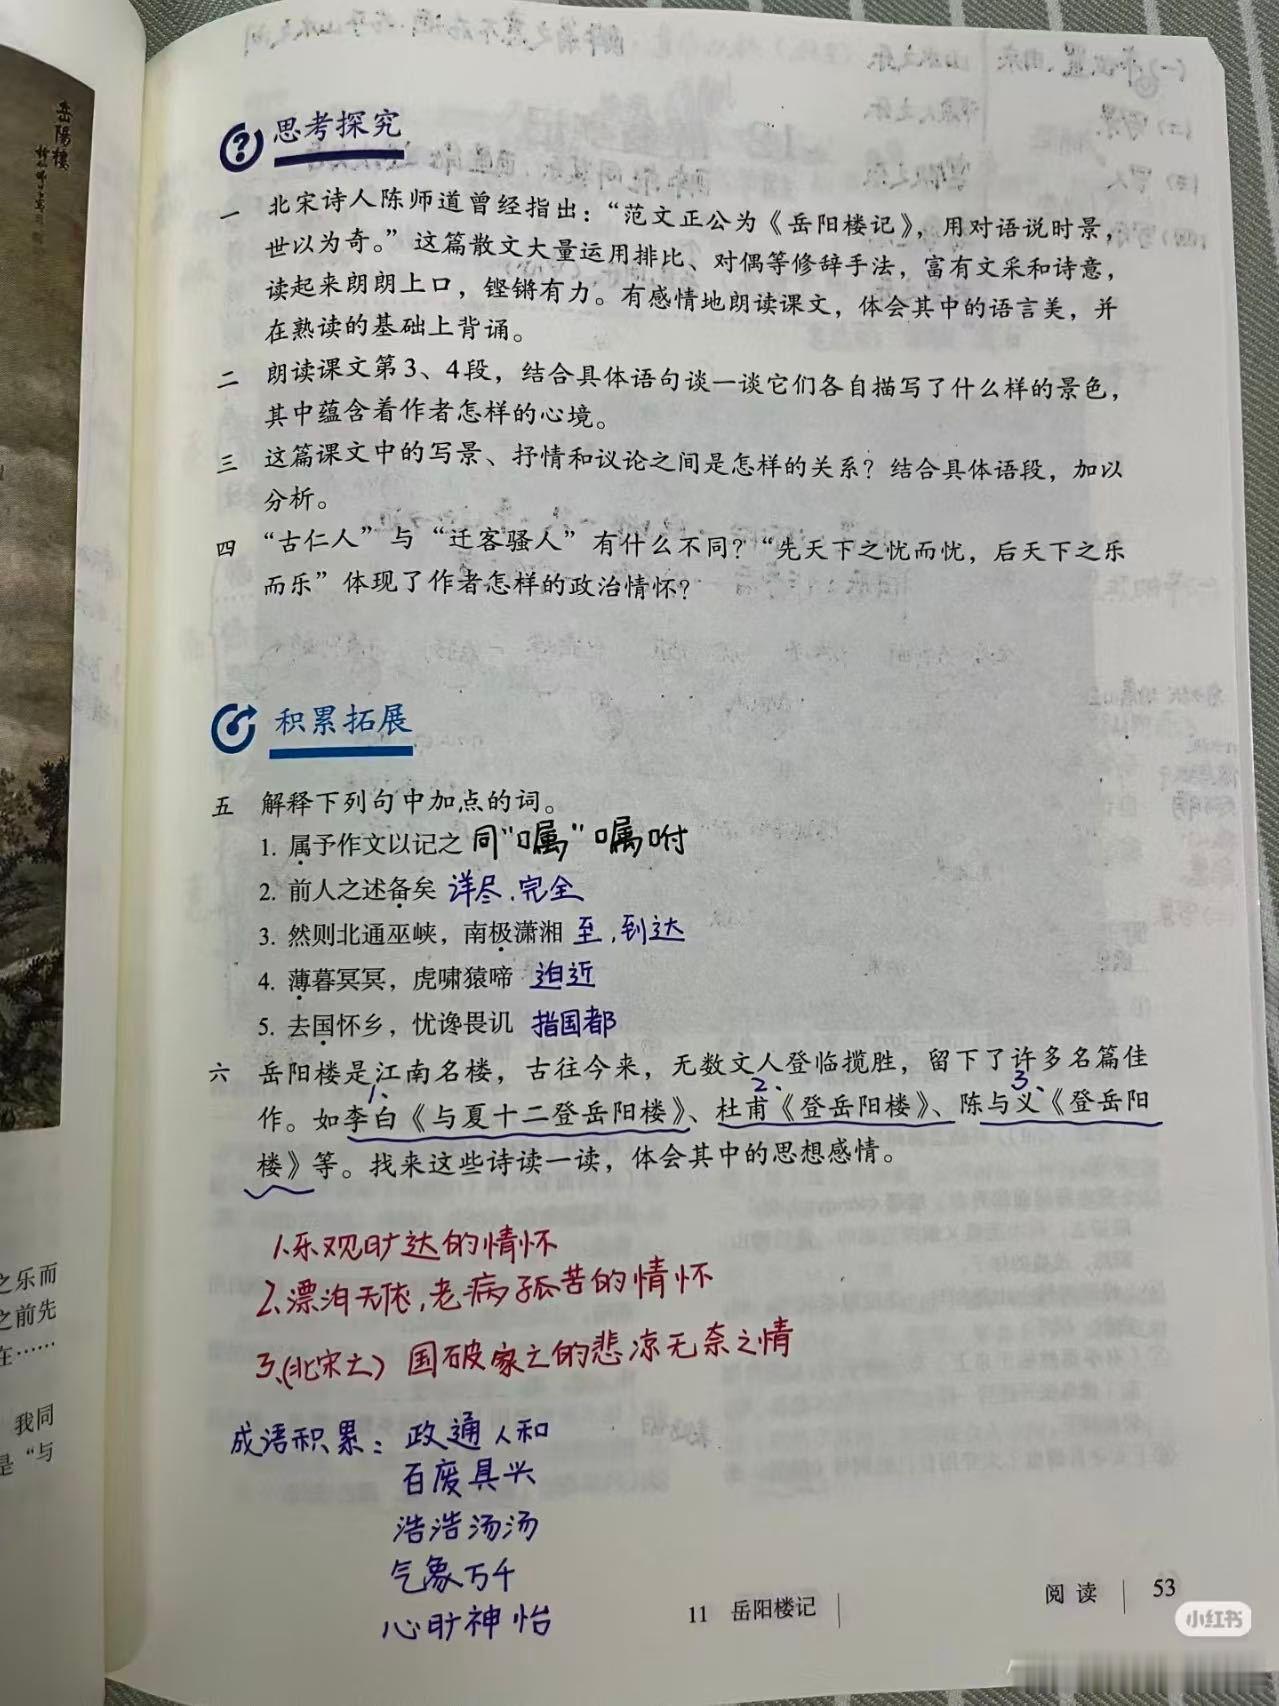 岳陽樓
思考探究
一 北宋诗人陈师道曾经指出：“范文正公为《岳阳楼记》，用对语说时景，
世以为奇。”这篇散文大量运用排比、对偶等修辞手法，富有文采和诗意，
读起来朗朗上口，铿锵有力。有感情地朗读课文，体会其中的语言美，并
在熟读的基础上背诵。
二 朗读课文第3、4段，结合具体语句谈一谈它们各自描写了什么样的景色，
其中蕴含着作者怎样的心境。
三 这篇课文中的写景、抒情和议论之间是怎样的关系？结合具体语段，加以
分析。
四 “古仁人”与“迁客骚人”有什么不同？“先天下之忧而忧，后天下之乐
而乐”体现了作者怎样的政治情怀？
积累拓展
五 解释下列句中加点的词。
1. 属予作文以记之 同“嘱”嘱咐
2. 前人之述备矣 详尽，完全
3. 然则北通巫峡，南极潇湘 至，到达
4. 薄暮冥冥，虎啸猿啼 迫近
5. 去国怀乡，忧谗畏讥 指国都
六 岳阳楼是江南名楼，古往今来，无数文人登临揽胜，留下了许多名篇佳
1、 2、 3、
作。如李白《与夏十二登岳阳楼》、杜甫《登岳阳楼》、陈与义《登岳阳
楼》等。找来这些诗读一读，体会其中的思想感情。
1.乐观旷达的情怀
2.漂泊无依，老病孤苦的情怀
3、(北宋亡) 国破家亡的悲凉无奈之情
成语积累：政通人和
百废具兴
浩浩汤汤
气象万千
心旷神怡
之乐而
之前先
在……
我同
是“与
11 岳阳楼记
阅读 53
小红书